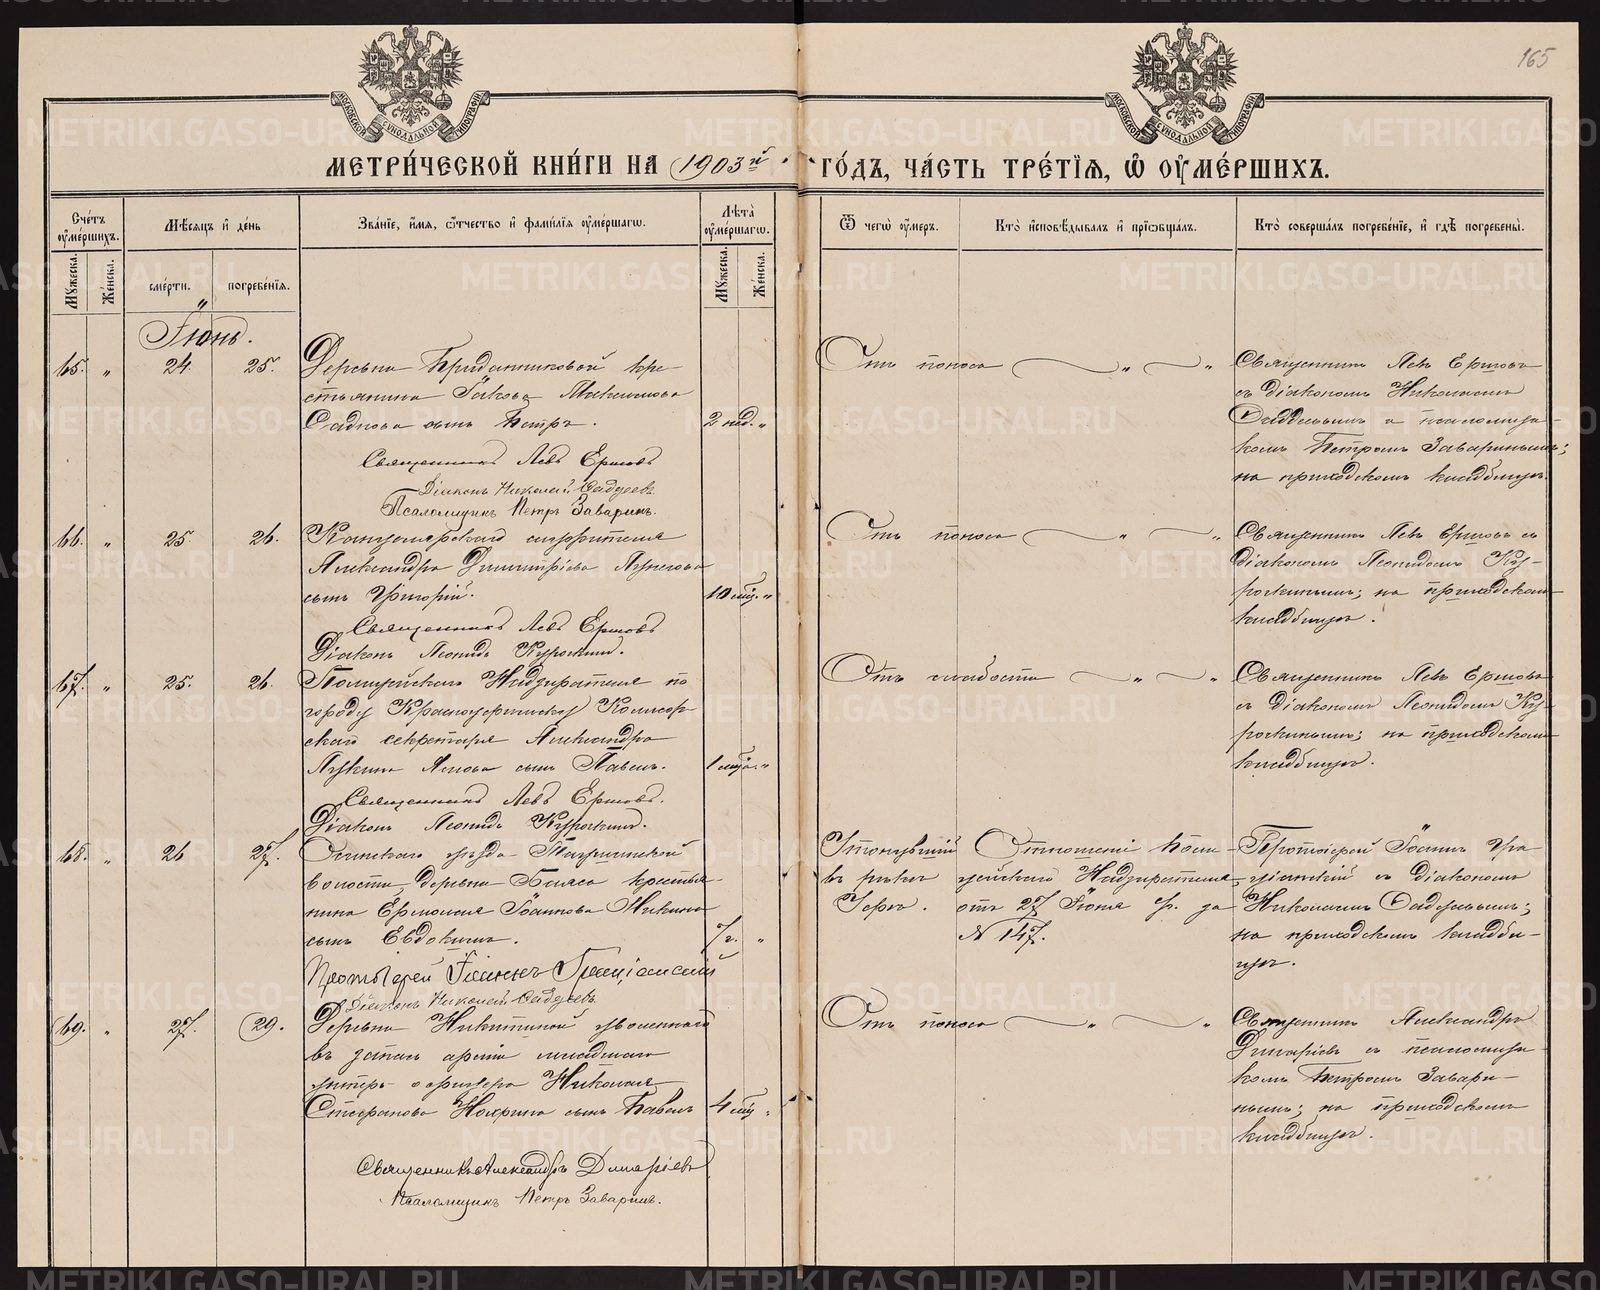 165
МОСКОВСКОЙ СѴНОДАЛЬНОЙ ТИПОГРАФІИ
МОСКОВСКОЙ СѴНОДАЛЬНОЙ ТИПОГРАФІИ
МЕТРИ́ЧЕСКОЙ КНИ́ГИ НА 1903й
ГО́ДЪ, ЧА́СТЬ ТРЕ́ТІѦ, Ѡ ОУ҆МЕ́РШИХЪ.
Сче́тъ оу҆ме́ршихъ.
Мѣ́сяцъ и҆ де́нь
Зва́нїе, и҆́мя, ѻ҆́тчество и҆ фами́лїя оу҆ме́ршагѡ.
Лѣ́та оу҆ме́ршагѡ.
Ѿ чегѡ̀ оу҆́меръ.
Кто̀ и҆сповѣ́дывалъ и҆ прїѡбща́лъ.
Кто̀ соверша́лъ погребе́нїе, и҆ гдѣ̀ погребены̀.
Мꙋ́жеска.
Же́нска.
сме́рти.
погребе́нїя.
Мꙋ́жеска.
Же́нска.
Іюнь.
65. " 24. 25. Деревни Приданниковой кре-
стьянина Іакова Максимова
Садкова сынъ Петръ. 2 нед. "
Священникъ Левъ Ершовъ
Діаконъ Николай Садуеевъ
Псаломщикъ Петръ Заваринъ.
Отъ поноса " "
Священникъ Левъ Ершовъ
съ діакономъ Николаемъ
и псаломщи-
комъ Петромъ Заваринымъ;
на приходскомъ кладбищѣ.
66. " 25. 26. Канцелярскаго служителя
Александра Димитріева
сынъ Григорій. 10 мѣс. "
Священникъ Левъ Ершовъ
Діаконъ Леонидъ Курочкинъ.
Отъ поноса " "
Священникъ Левъ Ершовъ съ
діакономъ Леонидомъ Ку-
рочкинымъ; на приходскомъ
кладбищѣ.
67. " 25. 26. Полицейскаго Надзирателя по
городу Красноуфимску Коллеж-
скаго секретаря Александра
сынъ Павелъ. 1 мѣс. "
Священникъ Левъ Ершовъ.
Діаконъ Леонидъ Курочкинъ.
Отъ слабости " "
Священникъ Левъ Ершовъ
съ діакономъ Леонидомъ Ку-
рочкинымъ; на приходскомъ
кладбищѣ.
68. " 26 27. Осинскаго уѣзда
волости, деревни крестья-
нина Ермолая Іоаннова
сынъ Евдокимъ. 7 г. "
Протоіерей Іоаннъ Граціанскій
Діаконъ Николай Садуеевъ
Утонувшій
въ рѣкѣ
Уфѣ.
Отношеніе Поли-
цейскаго Надзирателя
отъ 27 Іюня с. г. за
№ 147.
Протоіерей Іоаннъ Гра-
ціанскій съ діакономъ
Николаемъ
на приходскомъ кладби-
щѣ.
69. " 27. 29. Деревни Никитиной уволеннаго
въ запасъ арміи младшаго
унтеръ-офицера Николая
Стефанова сынъ Павелъ 4 мѣс. "
Священникъ Александръ Димаріевъ
Псаломщикъ Петръ Заваринъ.
Отъ поноса " "
Священникъ Александръ
Димаріевъ съ псаломщи-
комъ Петромъ Завари-
нымъ; на приходскомъ
кладбищѣ.
METRIKI.GASO-URAL.RU